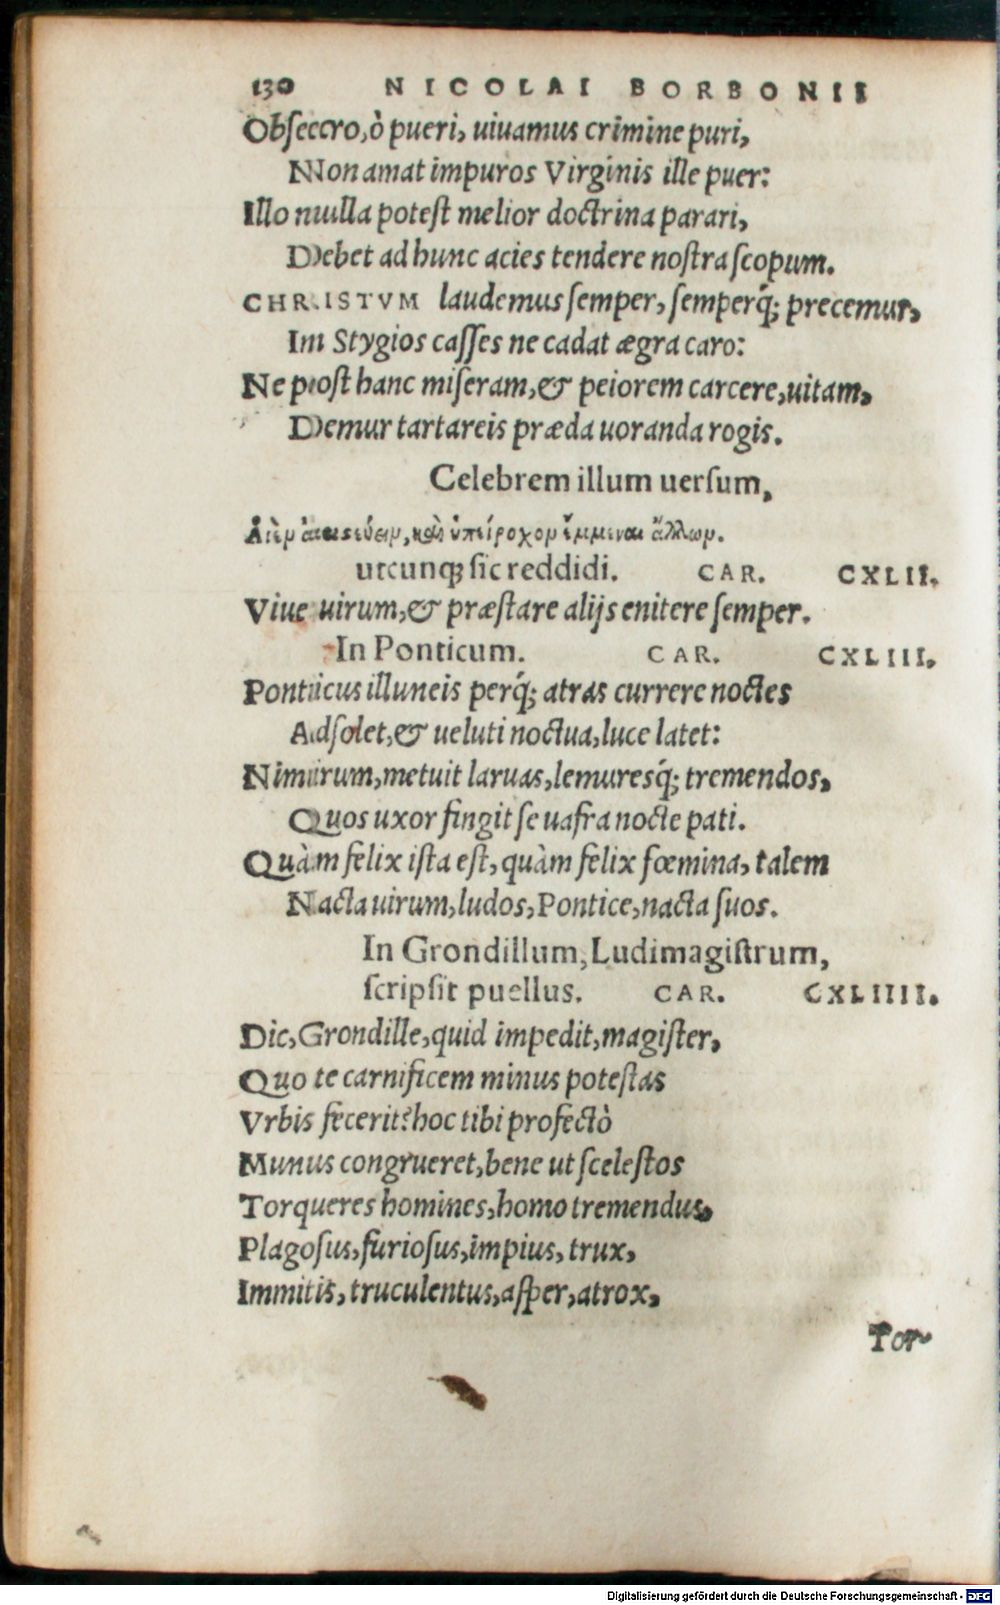 130 NICOLAI BORBONII
Obsecro, ò pueri, uiuamus crimine puri,
Non amat impuros Virginis ille puer:
Illo nulla potest melior doctrina parari,
Debet ad hunc acies tendere nostra scopum.
CHRISTVM laudemus semper, semperq́; precemur,
In Stygios casses ne cadat ægra caro:
Ne post hanc miseram, & peiorem carcere, uitam,
Demur tartareis præda uoranda rogis.
Celebrem illum uersum,
Αἰὲν ἀριστεύειν, καὶ ὑπείροχον ἔμμεναι ἄλλων.
utcunq; sic reddidi. CAR. CXLII.
Viue uirum, & præstare alijs enitere semper.
In Ponticum. CAR. CXLIII.
Ponticus illuneis perq́; atras currere noctes
Adsolet, & ueluti noctua, luce latet:
Nimirum, metuit laruas, lemuresq́; tremendos,
Quos uxor fingit se uafra nocte pati.
Quàm felix ista est, quàm felix fœmina, talem
Nacta uirum, ludos, Pontice, nacta suos.
In Grondillum, Ludimagistrum,
scripsit puellus. CAR. CXLIIII.
Dic, Grondille, quid impedit, magister,
Quo te carnificem minus potestas
Vrbis fecerit? hoc tibi profectò
Munus congrueret, bene ut scelestos
Torqueres homines, homo tremendus,
Plagosus, furiosus, impius, trux,
Immitis, truculentus, asper, atrox,
Tor-
Digitalisierung gefördert durch die Deutsche Forschungsgemeinschaft - DFG